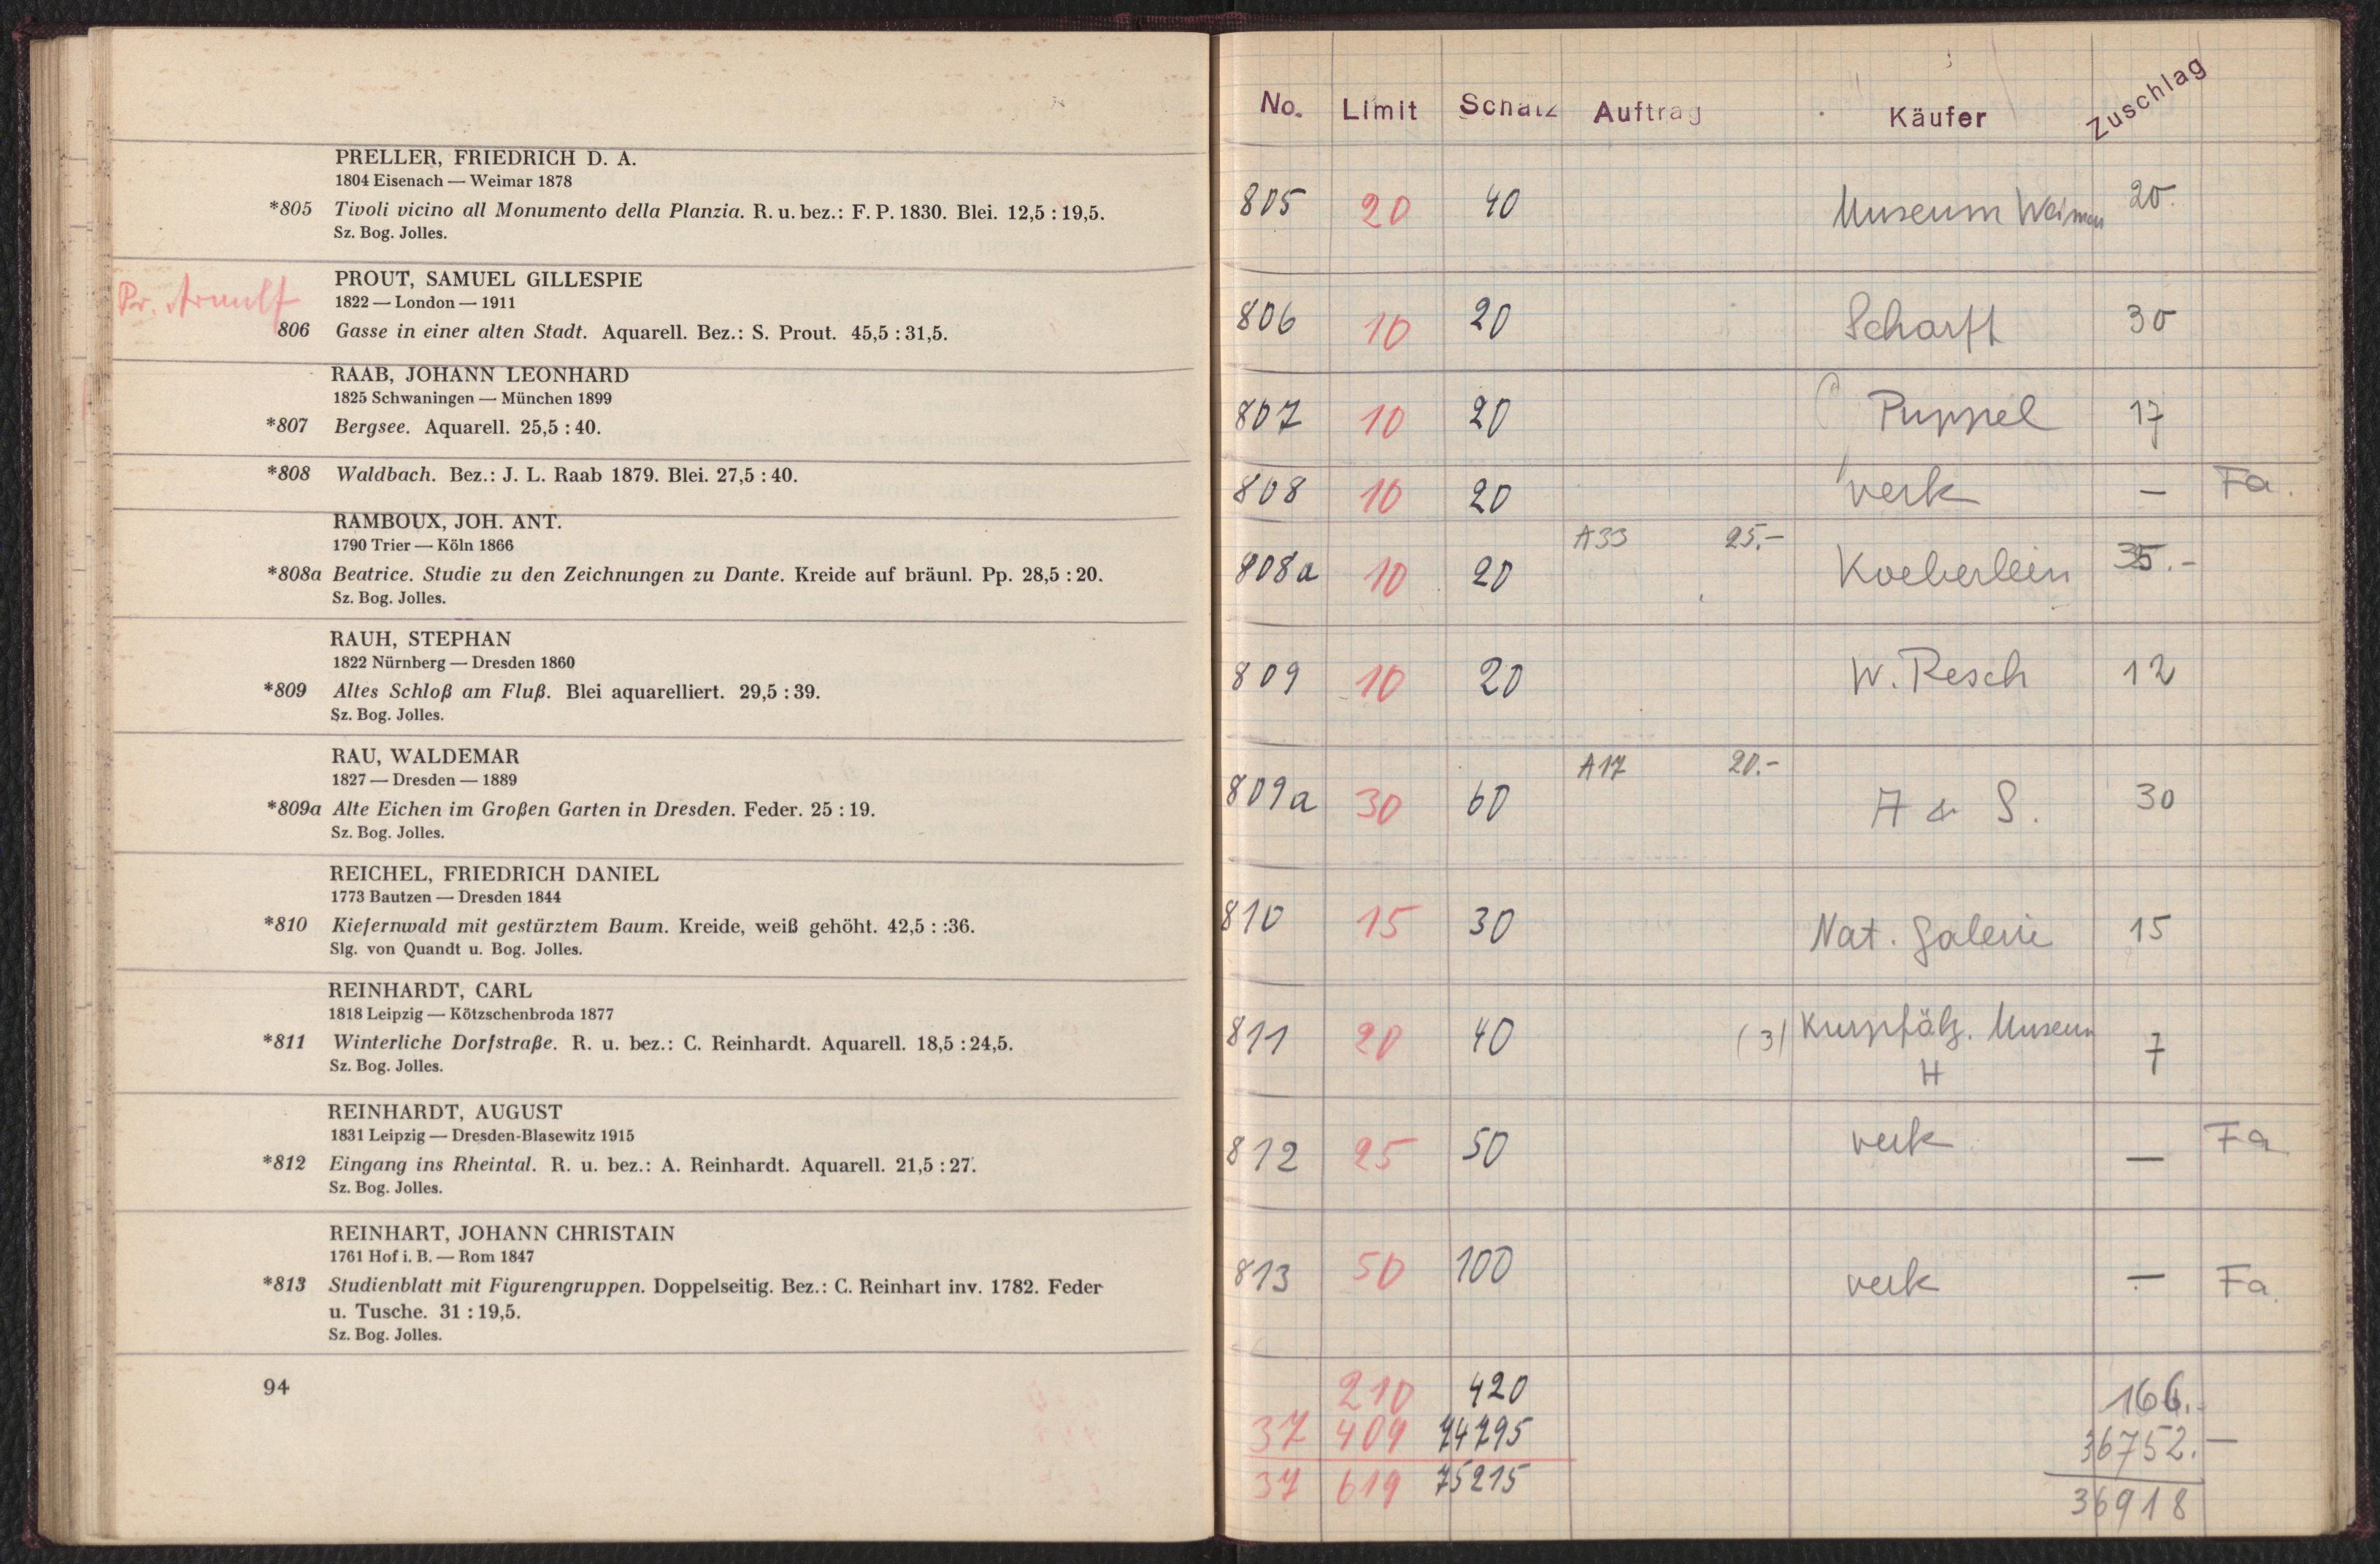 PRELLER, FRIEDRICH D. A.
1804 Eisenach — Weimar 1878
*805 Tivoli vicino all Monumento della Planzia. R. u. bez.: F. P. 1830. Blei. 12,5 : 19,5.
Sz. Bog. Jolles.
PROUT, SAMUEL GILLESPIE
Pr.
1822 — London — 1911
806 Gasse in einer alten Stadt. Aquarell. Bez.: S. Prout. 45,5 : 31,5.
RAAB, JOHANN LEONHARD
1825 Schwaningen — München 1899
*807 Bergsee. Aquarell. 25,5 : 40.
*808 Waldbach. Bez.: J. L. Raab 1879. Blei. 27,5 : 40.
RAMBOUX, JOH. ANT.
1790 Trier — Köln 1866
*808a Beatrice. Studie zu den Zeichnungen zu Dante. Kreide auf bräunl. Pp. 28,5 : 20.
Sz. Bog. Jolles.
RAUH, STEPHAN
1822 Nürnberg — Dresden 1860
*809 Altes Schloß am Fluß. Blei aquarelliert. 29,5 : 39.
Sz. Bog. Jolles.
RAU, WALDEMAR
1827 — Dresden — 1889
*809a Alte Eichen im Großen Garten in Dresden. Feder. 25 : 19.
Sz. Bog. Jolles.
REICHEL, FRIEDRICH DANIEL
1773 Bautzen — Dresden 1844
*810 Kiefernwald mit gestürztem Baum. Kreide, weiß gehöht. 42,5 : :36.
Slg. von Quandt u. Bog. Jolles.
REINHARDT, CARL
1818 Leipzig — Kötzschenbroda 1877
*811 Winterliche Dorfstraße. R. u. bez.: C. Reinhardt. Aquarell. 18,5 : 24,5.
Sz. Bog. Jolles.
REINHARDT, AUGUST
1831 Leipzig — Dresden-Blasewitz 1915
*812 Eingang ins Rheintal. R. u. bez.: A. Reinhardt. Aquarell. 21,5 : 27.
Sz. Bog. Jolles.
REINHART, JOHANN CHRISTAIN
1761 Hof i. B. — Rom 1847
*813 Studienblatt mit Figurengruppen. Doppelseitig. Bez.: C. Reinhart inv. 1782. Feder
u. Tusche. 31 : 19,5.
Sz. Bog. Jolles.
94
No. Limit Schätz Auftrag Käufer Zuschlag
805 20 40 Museum Weimar 20.
806 10 20 Scharff 30
807 10 20 Puppel 17
808 10 20 verk — Fa.
A33 25.-
808a 10 20 Koeberlein 35.-
809 10 20 W. Resch 12
A17 20.-
809a 30 60 A & S. 30
810 15 30 Nat. Galerie 15
811 20 40 (3) Kurpfälz. Museum 7
H
812 25 50 verk — Fa
813 50 100 verk — Fa.
210 420 166.
37 409 74795 36752.—
37 619 75215 36918